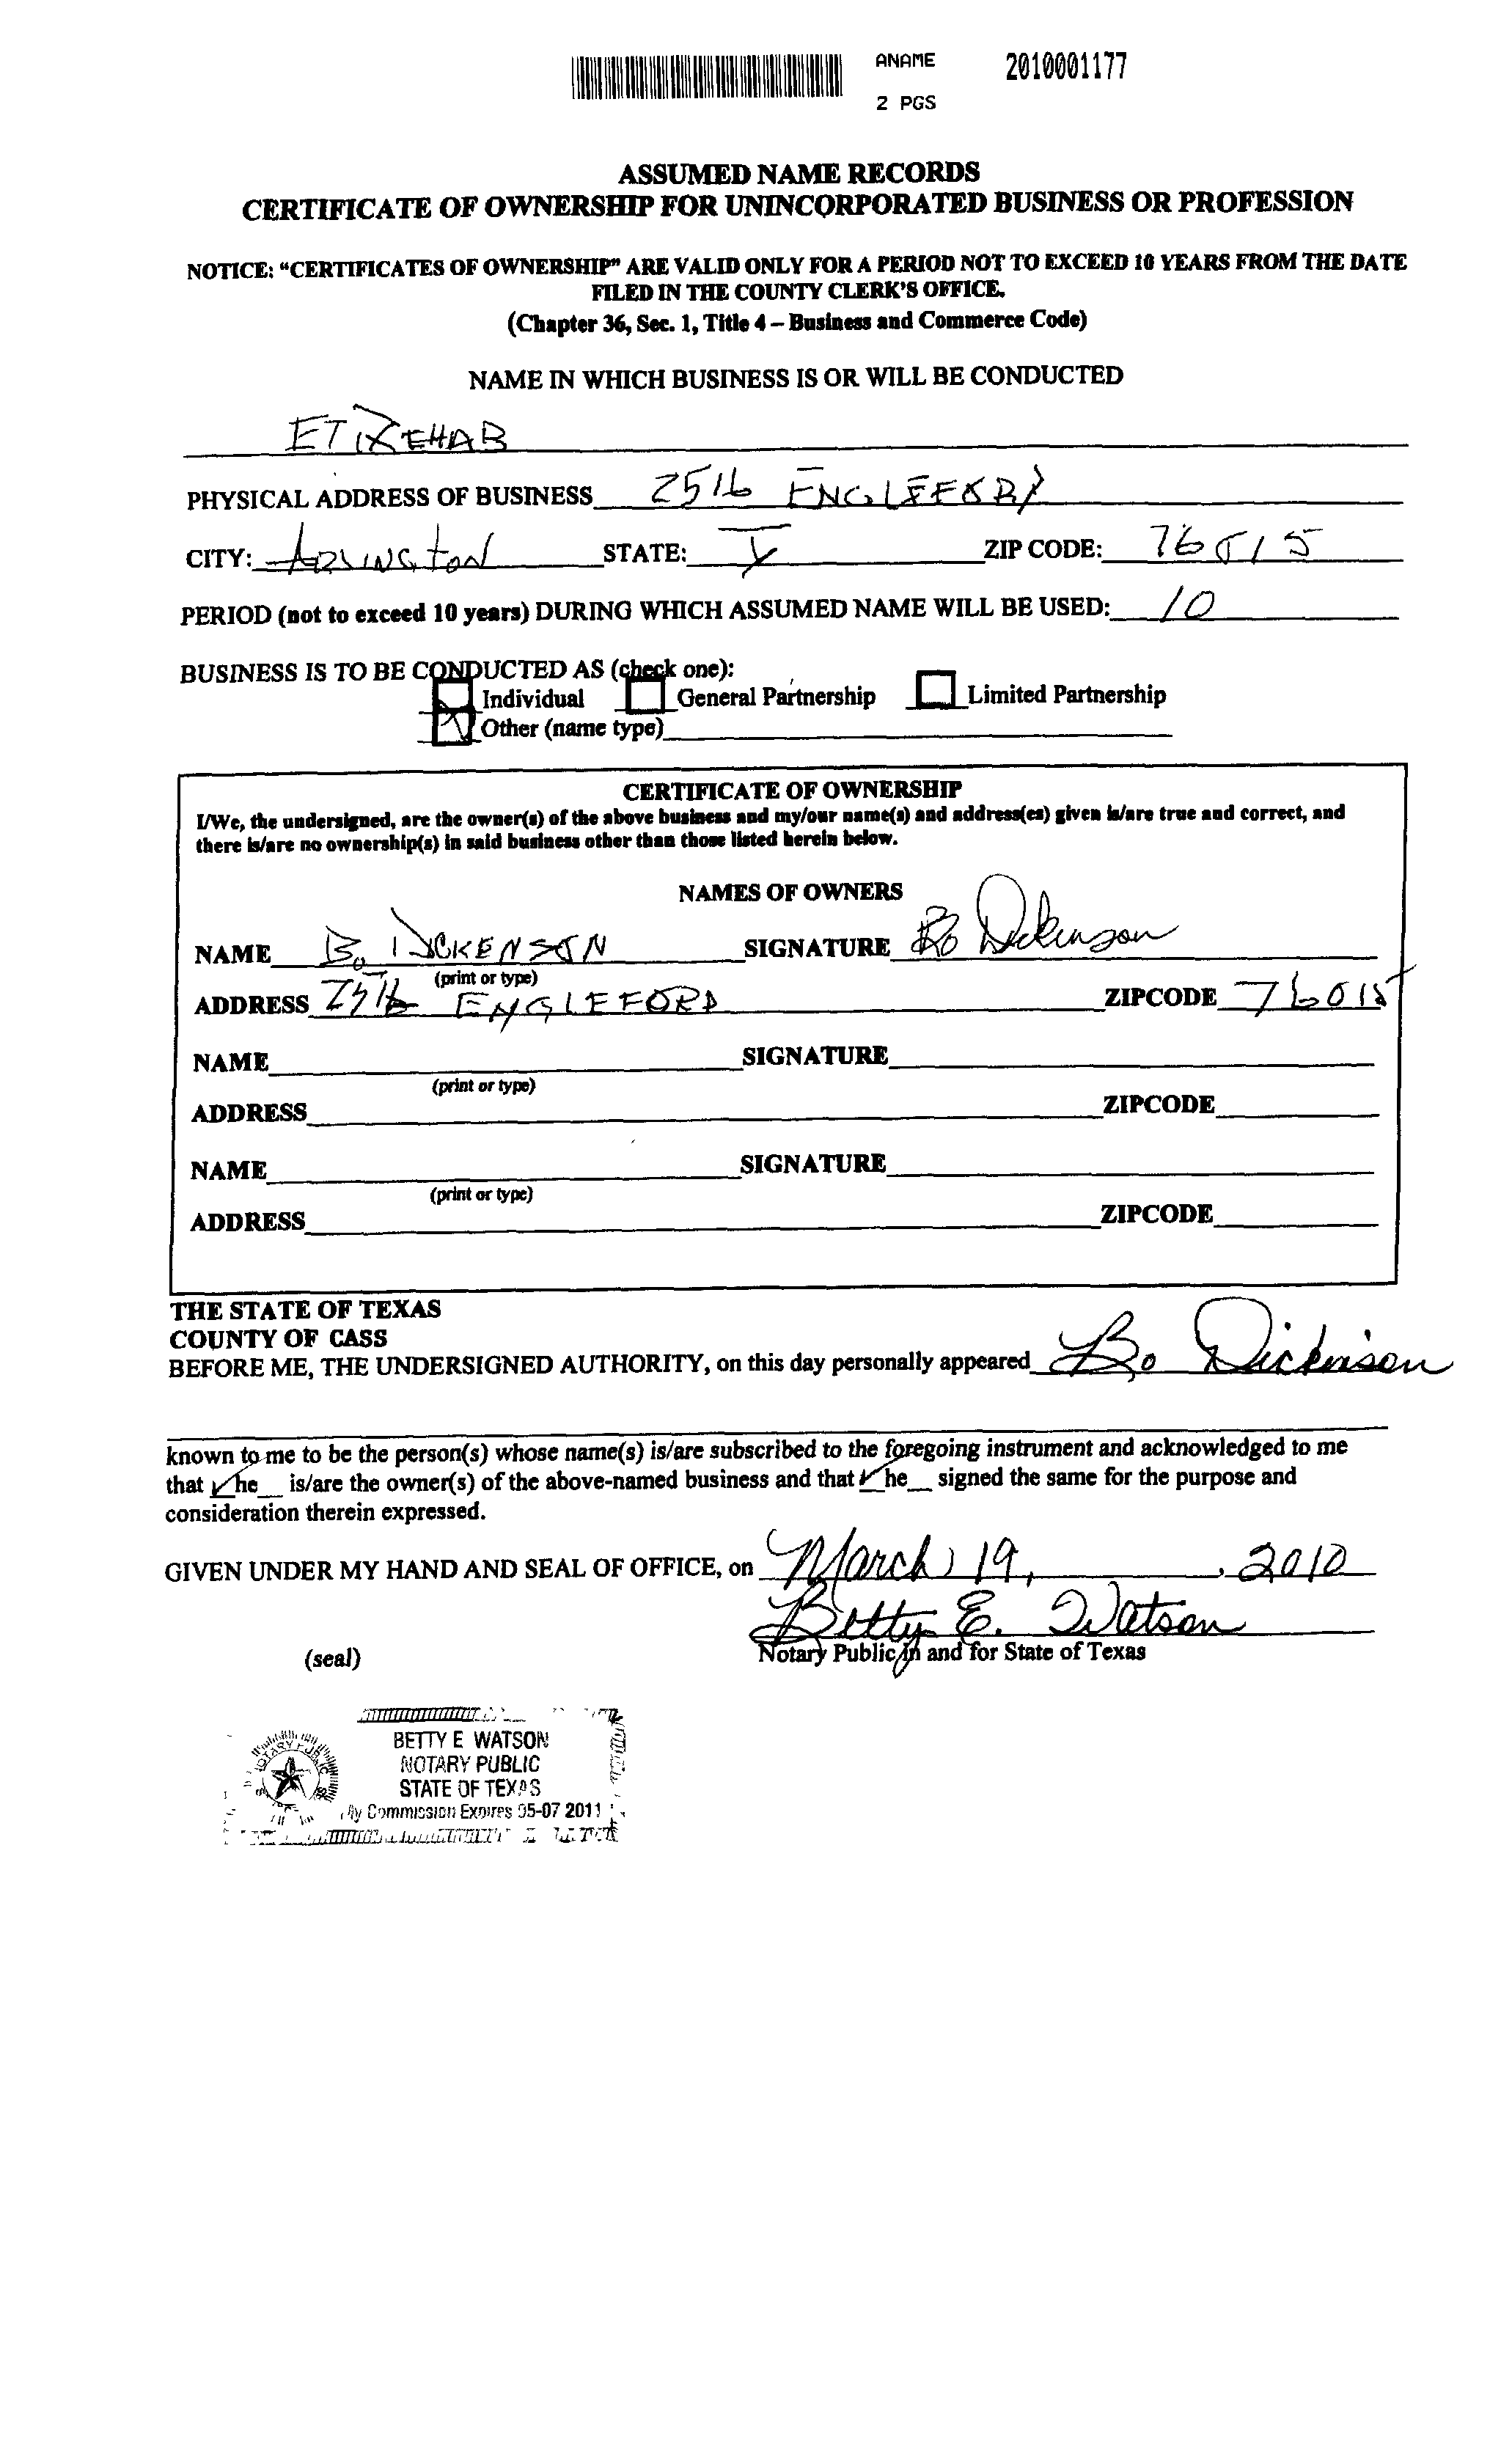 ANAME 2010001177
2 PGS
ASSUMED NAME RECORDS
CERTIFICATE OF OWNERSHIP FOR UNINCORPORATED BUSINESS OR PROFESSION
NOTICE: “CERTIFICATES OF OWNERSHIP” ARE VALID ONLY FOR A PERIOD NOT TO EXCEED 10 YEARS FROM THE DATE
FILED IN THE COUNTY CLERK'S OFFICE.
(Chapter 36, Sec. 1, Title 4 – Business and Commerce Code)
NAME IN WHICH BUSINESS IS OR WILL BE CONDUCTED
ETIREHAB
PHYSICAL ADDRESS OF BUSINESS 2516 ENGLEFORD
CITY: ARLINGTON STATE: TX ZIP CODE: 76015
PERIOD (not to exceed 10 years) DURING WHICH ASSUMED NAME WILL BE USED: 10
BUSINESS IS TO BE CONDUCTED AS (check one):
Individual General Partnership Limited Partnership
Other (name type)
CERTIFICATE OF OWNERSHIP
I/We, the undersigned, are the owner(s) of the above business and my/our name(s) and address(es) given is/are true and correct, and
there is/are no ownership(s) in said business other than those listed herein below.
NAMES OF OWNERS
NAME Bo DICKENSON SIGNATURE Bo Dickenson
(print or type)
ADDRESS 2516 ENGLEFORD ZIPCODE 76015
NAME SIGNATURE
(print or type)
ADDRESS ZIPCODE
NAME SIGNATURE
(print or type)
ADDRESS ZIPCODE
THE STATE OF TEXAS
COUNTY OF CASS
BEFORE ME, THE UNDERSIGNED AUTHORITY, on this day personally appeared Bo Dickinson
known to me to be the person(s) whose name(s) is/are subscribed to the foregoing instrument and acknowledged to me
that he is/are the owner(s) of the above-named business and that he signed the same for the purpose and
consideration therein expressed.
GIVEN UNDER MY HAND AND SEAL OF OFFICE, on March 19, , 2010
Betty E. Watson
Notary Public in and for State of Texas
(seal)
BETTY E WATSON
NOTARY PUBLIC
STATE OF TEXAS
My Commission Expires 05-07 2011